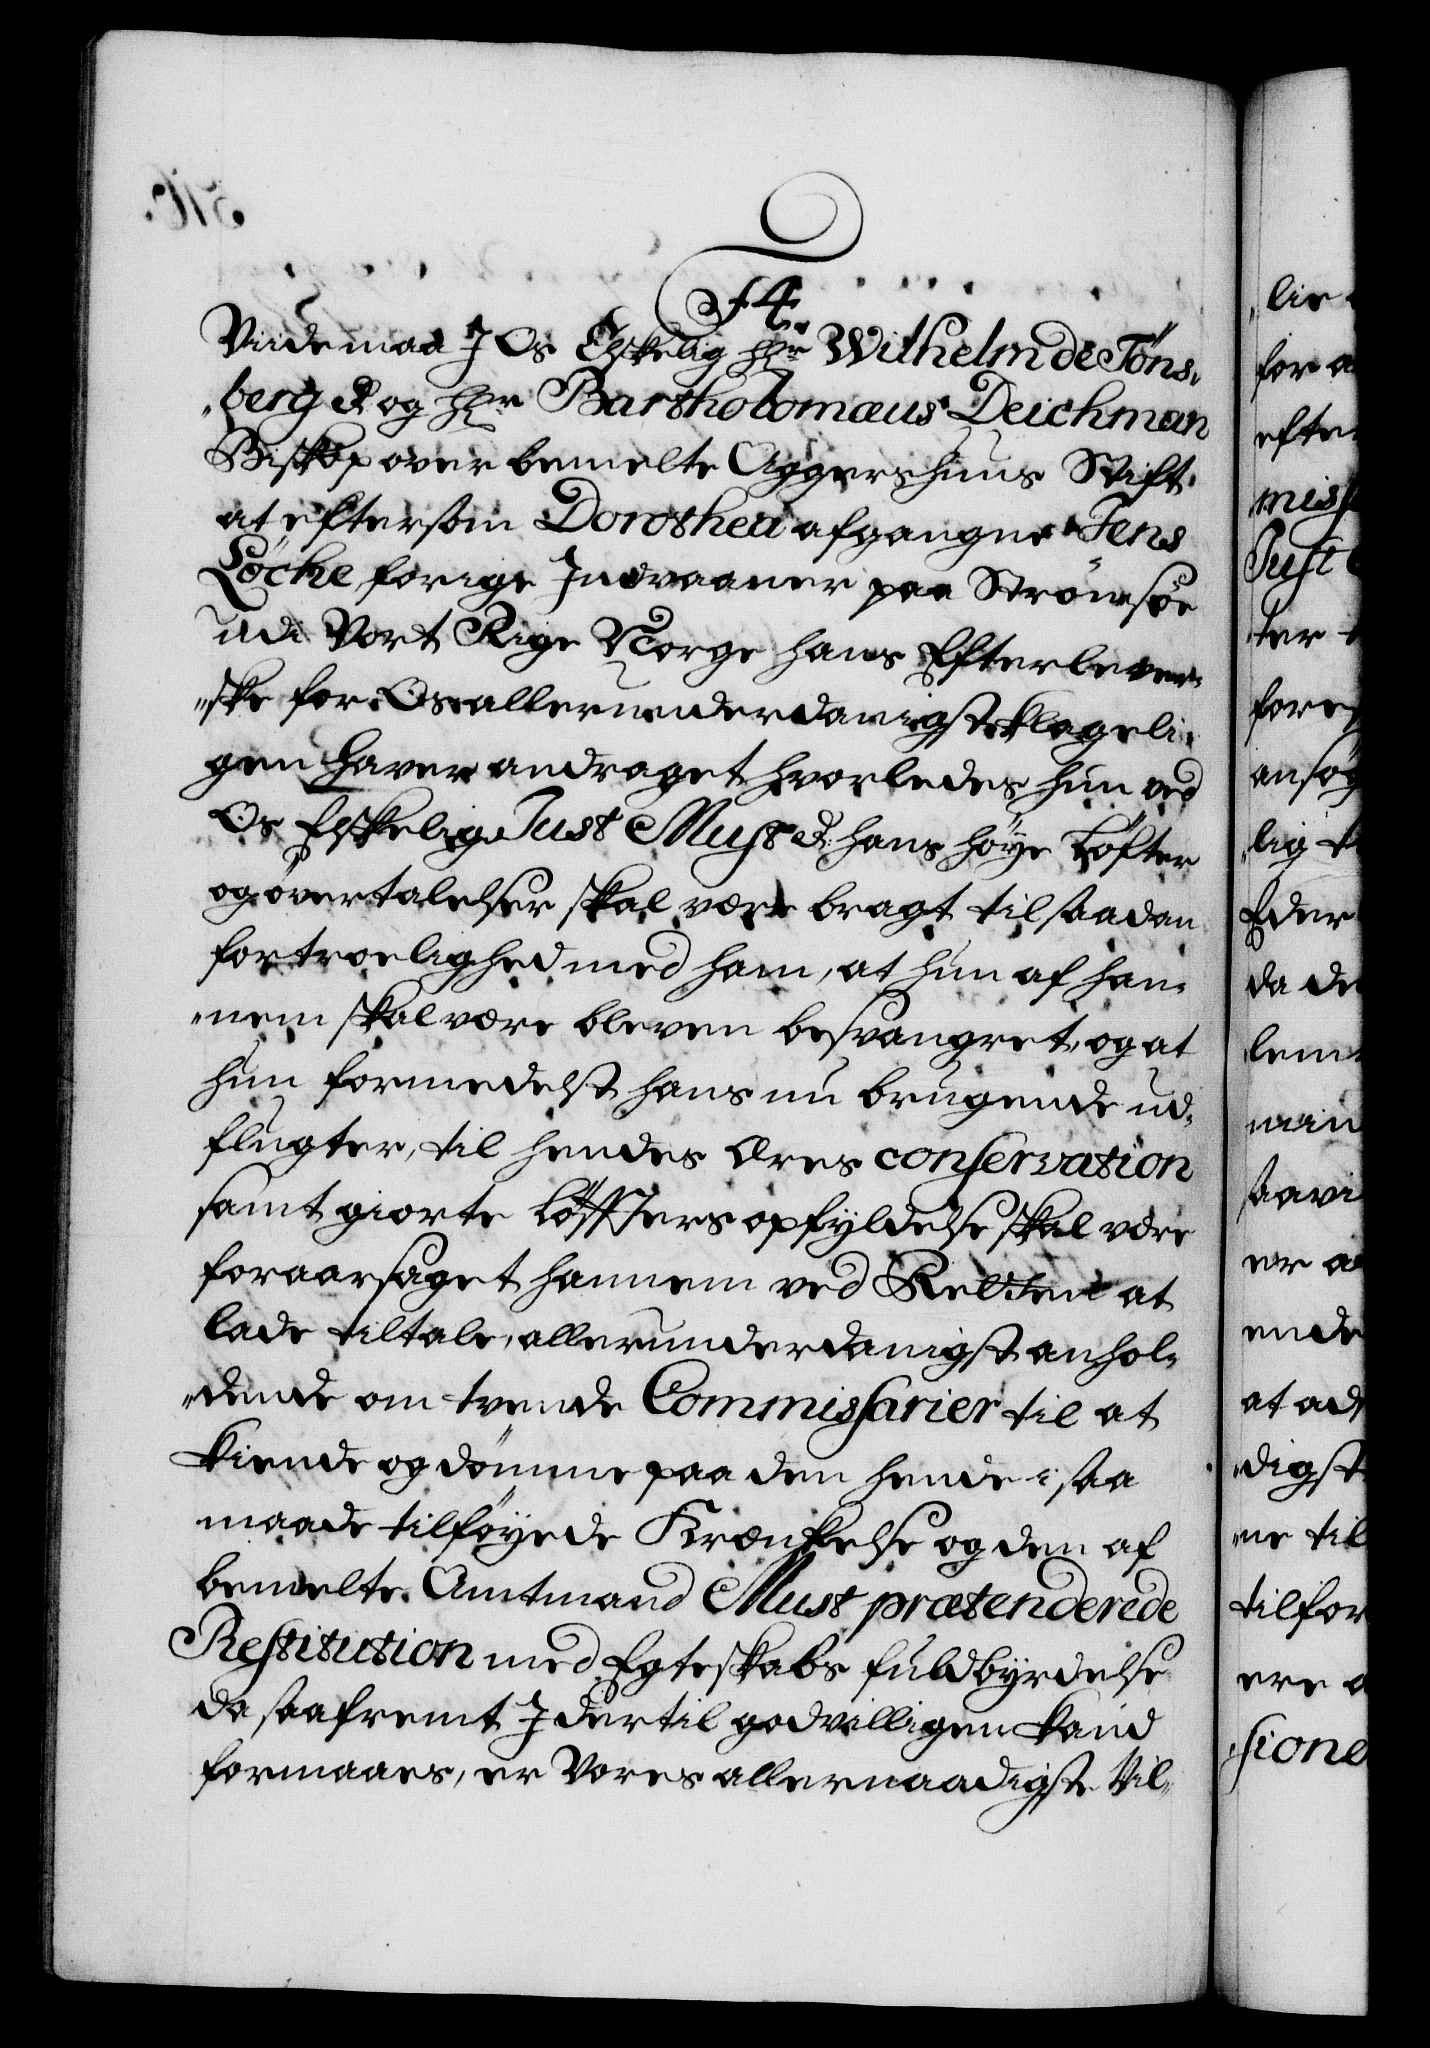 F4.
Viide maa J Os Elskelig Hr Wilhelm de Töns,
„berg R og Hr Bartholomæus Deichman
Biskop over bemelte Aggershuus Stift
at eftersom Dorothea afgangne Jens
Löcke forige Indvaaner paa Strömsöe
udi Vort Rige Norge hans Efterlever,
„ske for Os allerunderdanigst klageli,
gen haver andraget hvorledes hun ved
Os Elskelig Just Must R: hans höye Löfter
og overtalelser skal være bragt til saadan
fortroelighed med ham, at hun af han,
„nem skal være bleven besvangret, og at
hun formedelst hans nu brugende ud,
flugter, til hendes Æres conservation
samt giorte Löffters opfyldelse skal være
foraarsaget hannem ved Retten at
lade tiltale, allerunderdanigst anhol,
„dende om tvende Commissarier til at
kiende og dömme paa den hende i saa
maade tilföyede Krænkelse og den af
bemelte Amtmand Must prætenderede
Restitution med Egteskabs fuldbyrdelse
da saafremt J dertil godvilligen kand
formaaes, er Vores allernaadigste Vil,